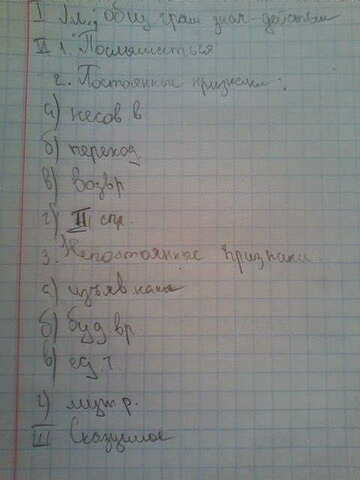 I Гл., общ грам знач-действи
II 1. Послышаться
2. Постоянные признаки:
а) несов в
б) переход
в) возвр
г) II спр.
3. Непостоянные признаки
а) изъяв накл
б) буд вр
в) ед. ч
г) муж р.
III Сказуемое